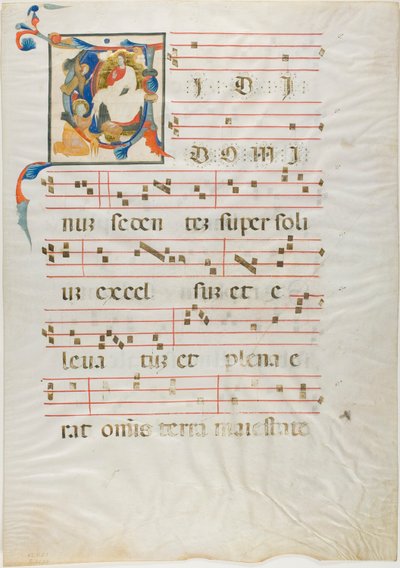 IDI
DOMI
nuz seden tez super soli
uz excel suz et e
leua tuz et plena e
rat omīs terra maiestate